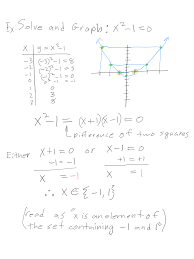 Ex. Solve and Graph: x²-1=0
x | y=x²-1
-3 | (-3)²-1=8
-2 | (-2)²-1=3
-1 | (-1)²-1=0
0
1 0
2 3
3 8
x²-1=(x+1)(x-1)=0
Difference of two squares
Either x+1=0 or x-1=0
-1 -1 +1 +1
x = -1 x = 1
∴ x∈{-1,1}
(read as "x is an element of
the set containing -1 and 1")